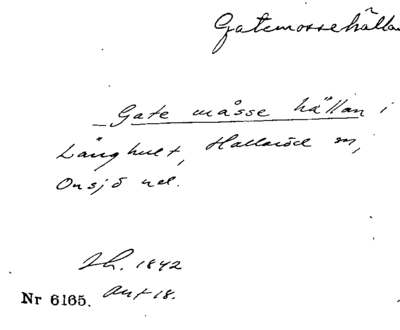 Gatemossehälla
Gate måsse hällan i
Långhult, Hallaröd sn,
Onsjö hd.
Sh. 1842
Ant 18.
Nr 6165.